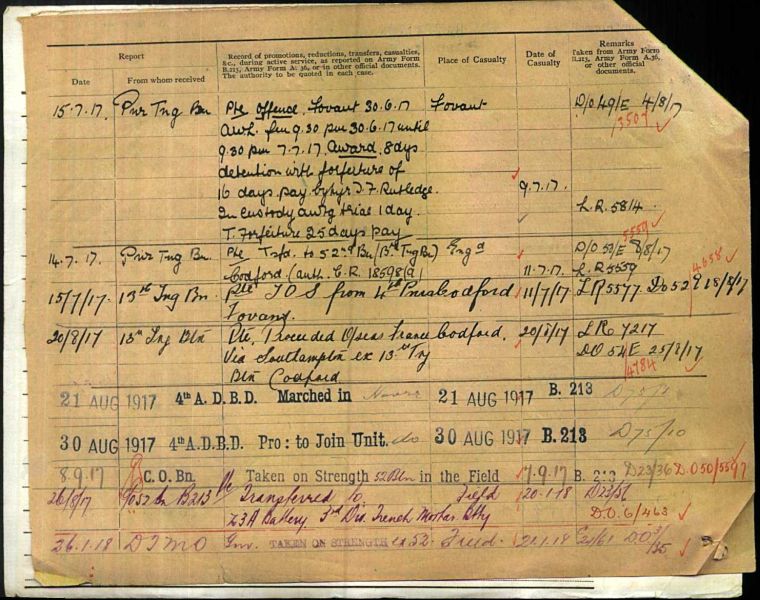 Report
Record of promotions, reductions, transfers, casualties, &c., during active service, as reported on Army Form B.213, Army Form A. 36, or in other official documents. The authority to be quoted in each case.
Place of Casualty
Date of Casualty
Remarks
Taken from Army Form B.213, Army Form A.36, or other official documents.
Date
From whom received
15.7.17. Pnr Tng Bn Pte Offence, Fovant 30.6.17 Fovant D/O 49/E 4/8/17
Awl. fm 9.30 pm 30.6.17 until 3507
9.30 pm 7.7.17. Award, 8 dys
detention with forfeiture of
16 days pay by Myr T. F. Rutledge. 9.7.17.
In Custody awtg trial 1 day. L.R. 5814
T. Forfeiture 25 days pay 5559
14.7.17. Pnr Tng Bn. Pte Tsfd. to 52nd Bn (13th Tng Bn) Engd D/O 52/E 8/8/17
Codford. (auth. C.R. 18598(9) 11.7.17. L.R. 5559
15/7/17. 13th Tng Bn. Pte T O S from 4th Codford 11/7/17. LR 5577. DO 52 18/8/17
Fovant
20/8/17 13th Tng Btn Pte. Proceeded O/seas France Codford. 20/8/17 LR 7217
Via Southampton ex 13th Tng DO 54E 25/8/17
Btn Codford 4784
21 AUG 1917 4th A. D. B. D. Marched in Havre 21 AUG 1917 B. 213
30 AUG 1917 4th A.D.B.D. Pro: to Join Unit. do 30 AUG 1917 B. 213 D75/10
8.9.17 C.O. Bn. Taken on Strength 52 Btn in the Field 7.9.17 B. 213 D23/36 D.O 50/5597
52 Bn B213 Pte Transferred to Field 20.1.18
Battery 3rd Div. Trench Mortar Bty D.O. 6/463
26.1.18 D T M O Gnr. TAKEN ON STRENGTH ex 52. Field